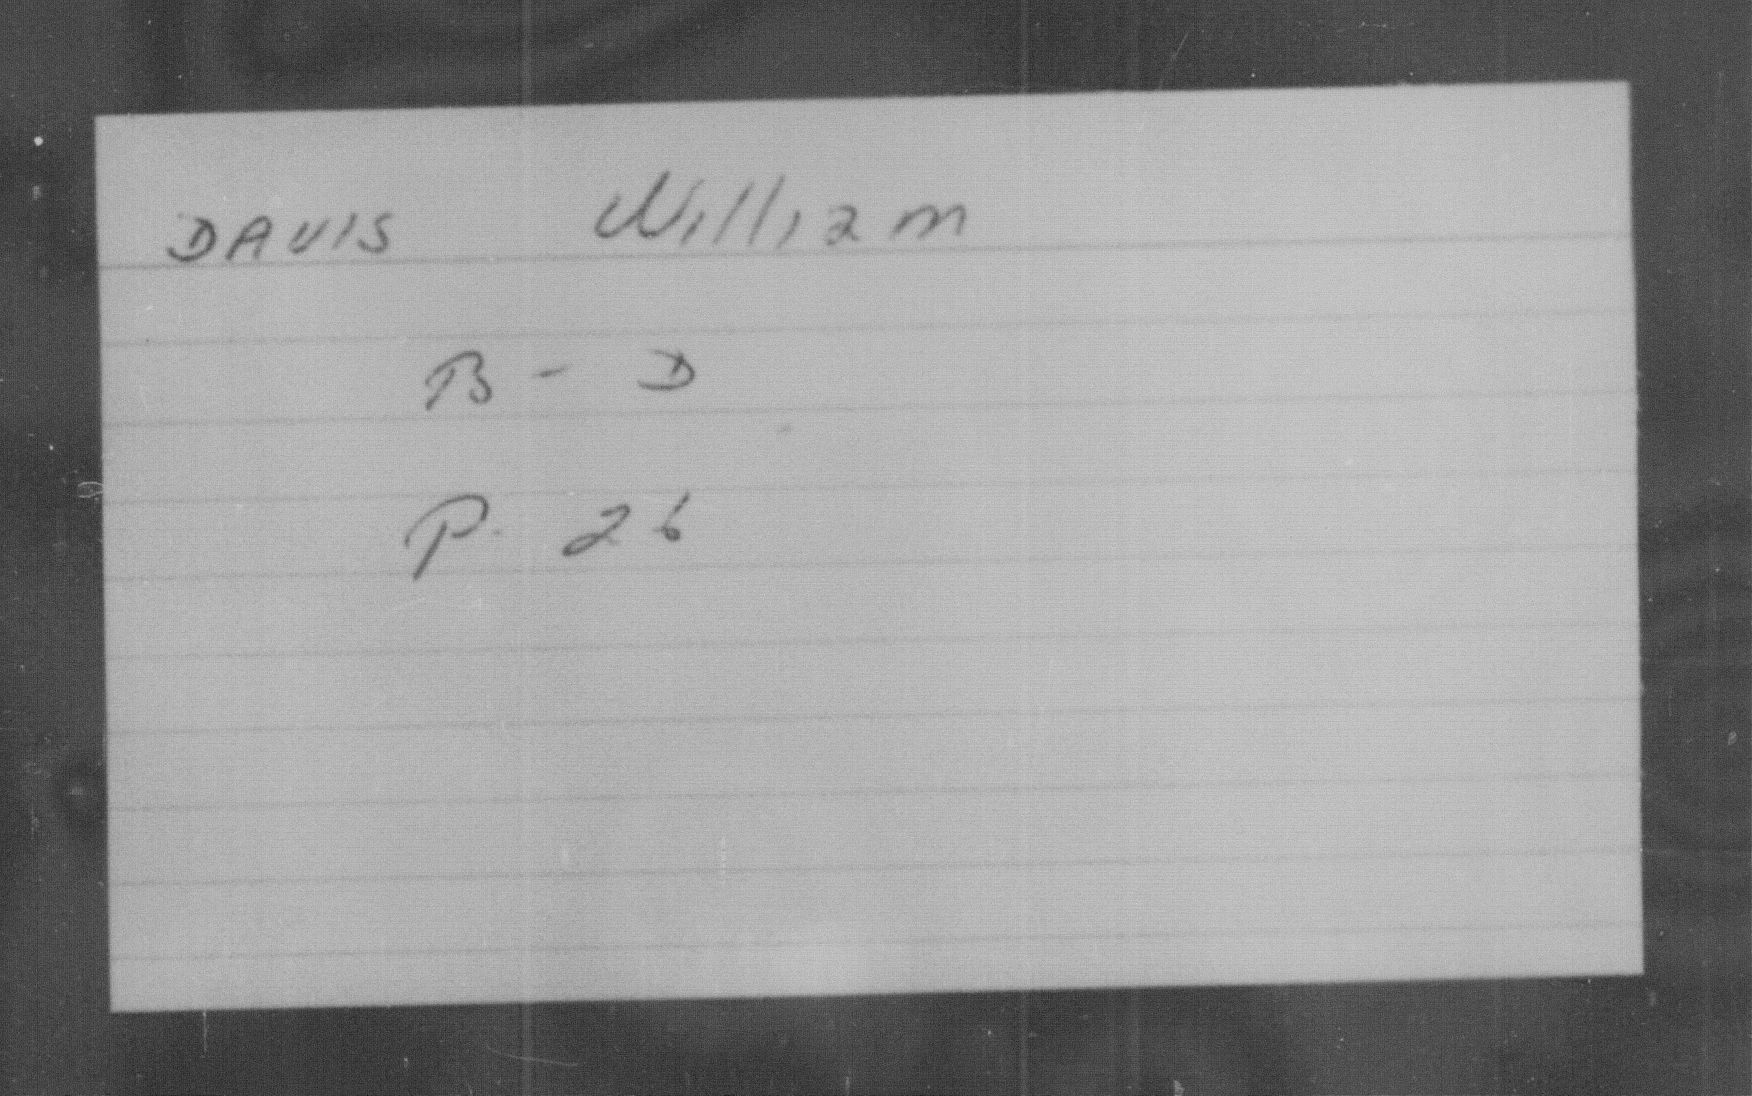 DAVIS William
B - D
P. 26